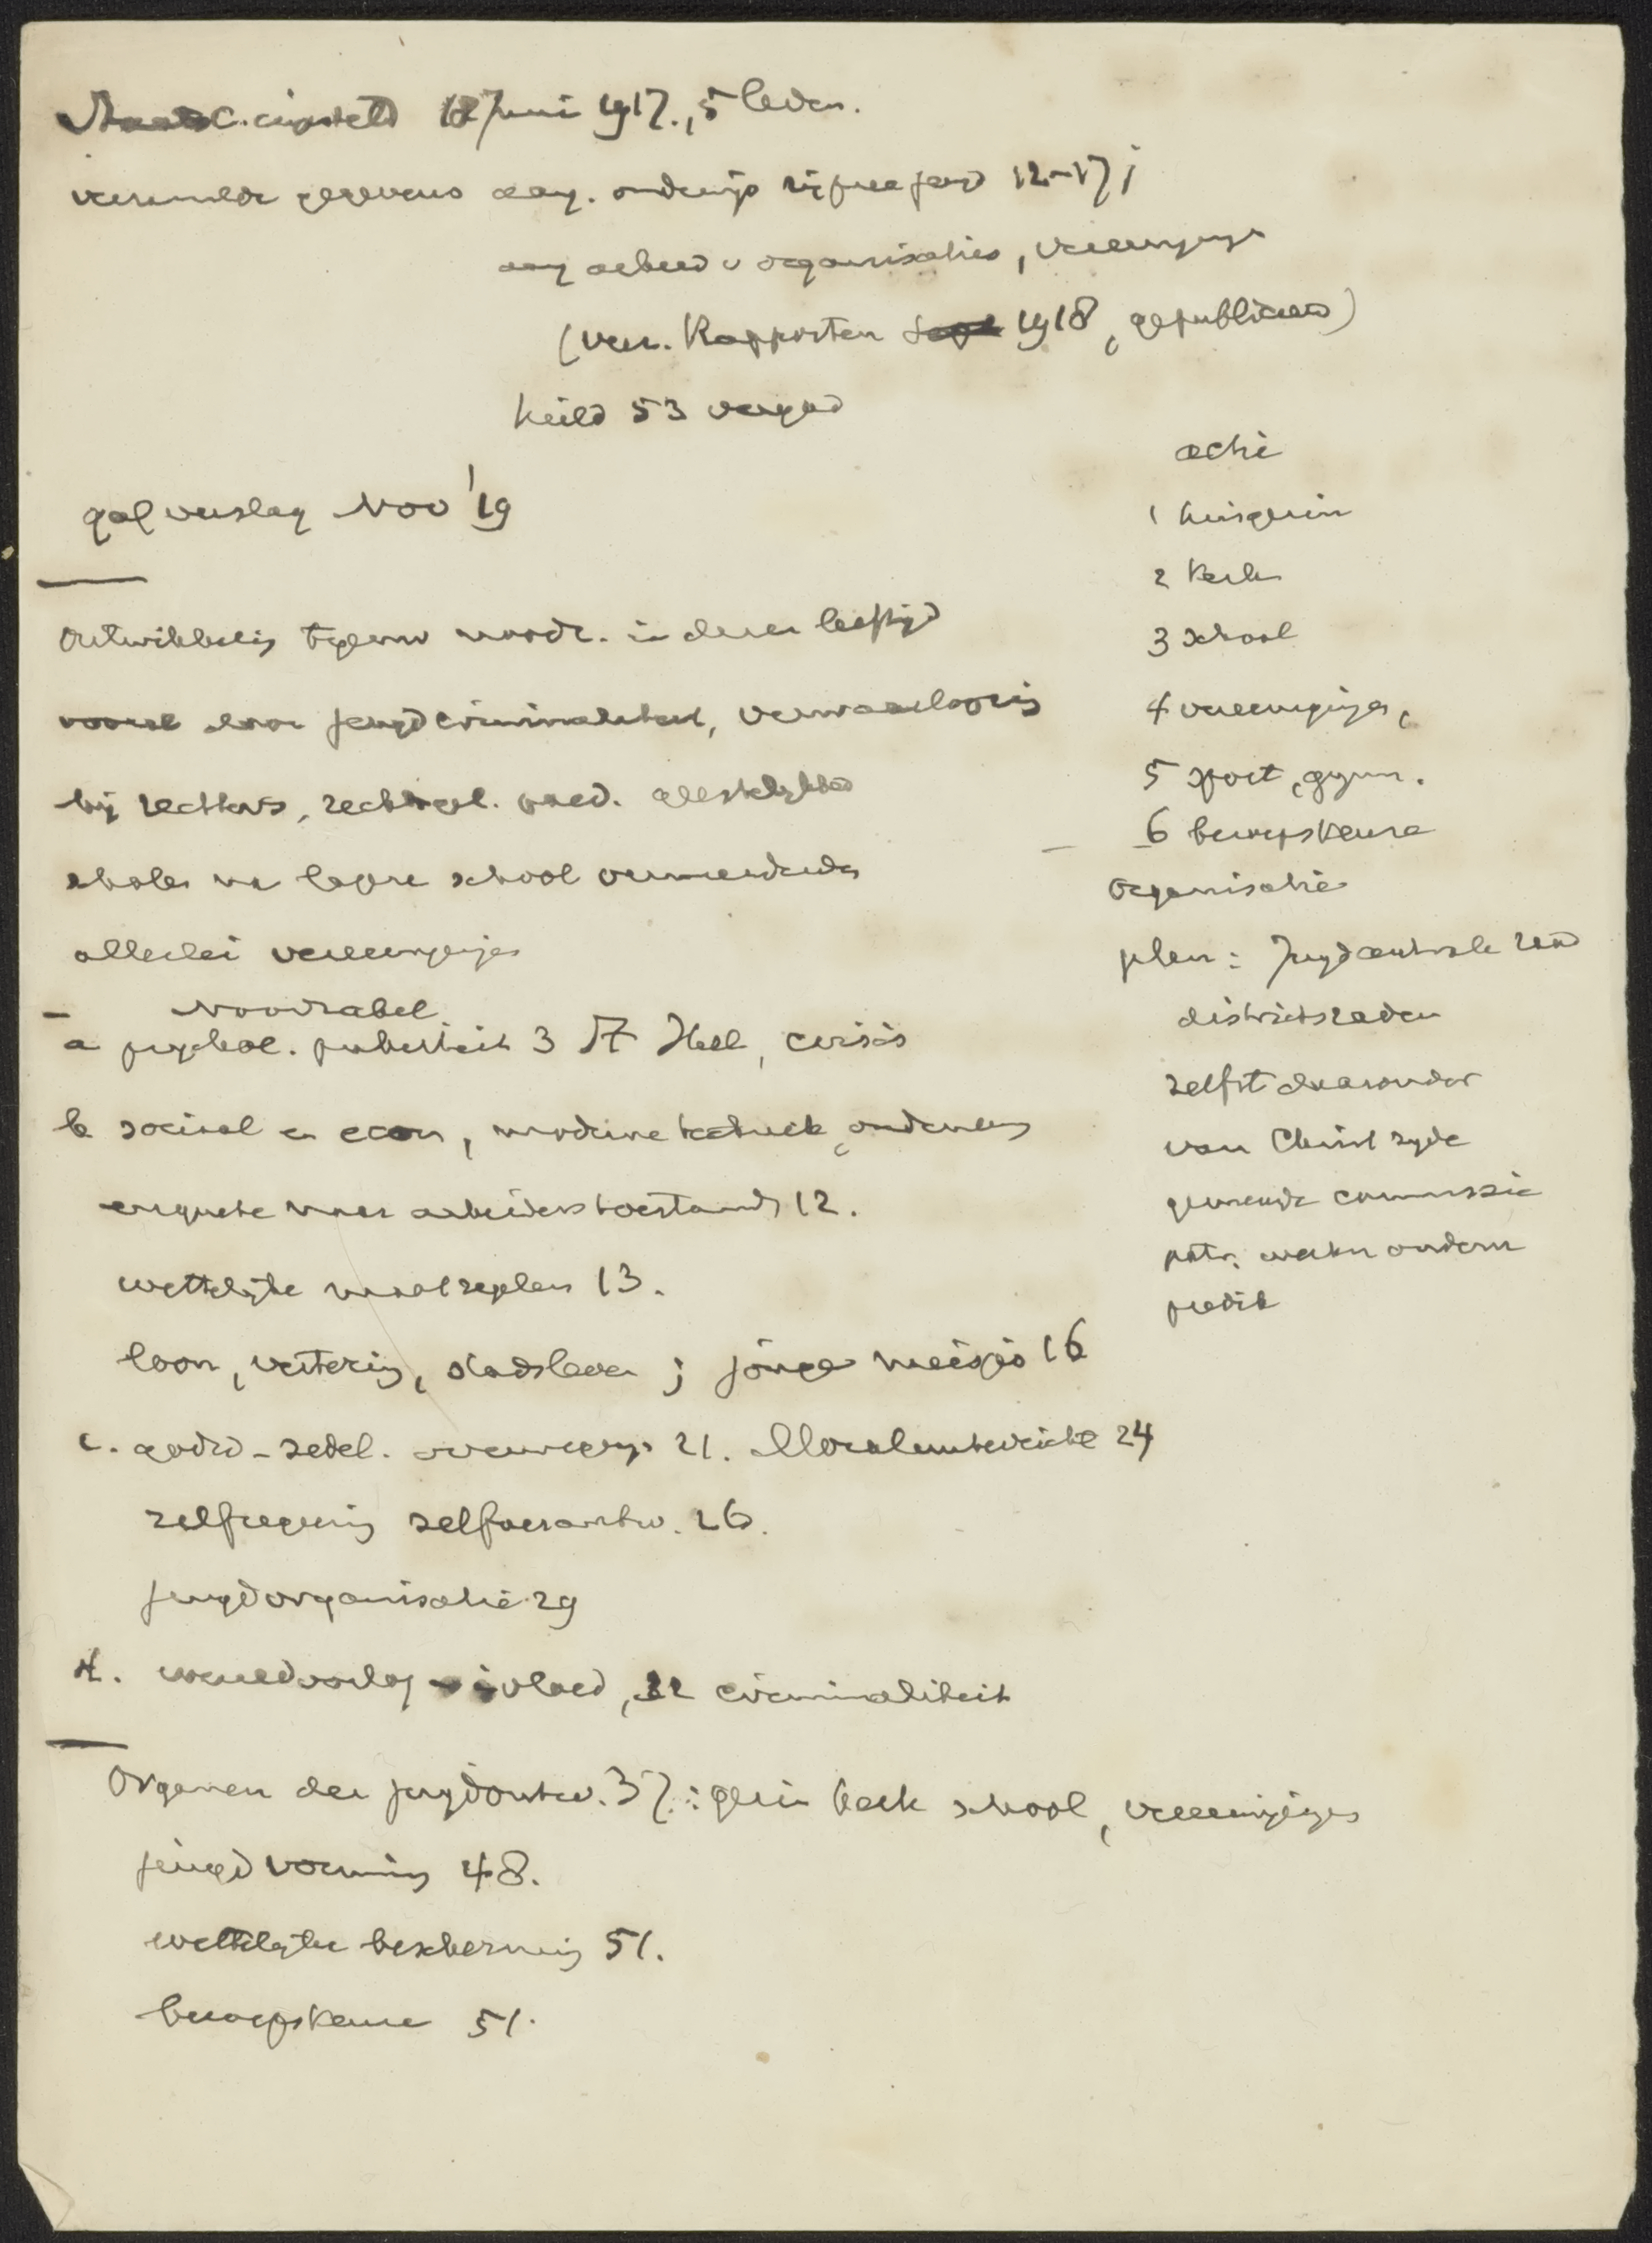 Staatsc. ingesteld 12 Juni 1917., 5 leden.
verzamelde gegevens aang. onderwijs rijpere jeugd 12-17 j
aang arbeid v organisaties, vereenigingen
(ver. Rapporten 1918, gepubliceerd)
hield 53 vergad
gaf verslag Nov '19
Ontwikkeling tegenw noodz. in dezen leeftijd
vooral door jeugdcriminaliteit, verwaarloozing
bij rechters, paed.
scholen na lagere school vermeerderden
allerlei vereenigingen
Noodzakel.
a psychol. puberteit 3 St Hall, crisis
b sociaal en econ, moderne techniek,
enquete naar arbeiderstoestand 12.
wettelijke maatregelen 13.
loon, stadsleven ; jonge meisjes 16
c. godsd-zedel. 21. Moralunterricht 24
zelfregering zelfverantw. 26.
jeugdorganisatie 29
4. wereldoorlog invloed, 32 criminaliteit
Organen der jeugdontw. 37 : gezin kerk school, vereenigingen
jeugdvorming 48.
wettelijke bescherming 51.
beroepskeuze 51.
actie
1 huisgezin
2 kerk
3 school
4 vereenigingen,
5 sport, gymn.
6 beroepskeuze
organisatie
plan: Jeugdcentrale raad
districtsraden
zelfst daaronder
van Christ zijde
gemeente commissie
predik